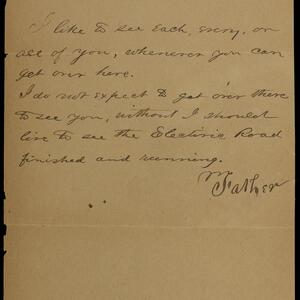 I like to see each, every, or
all of you, whenever you can
get over here.
I do not expect to get over there
to see you, without I should
live to see the Electric Road
finished and running.
Father